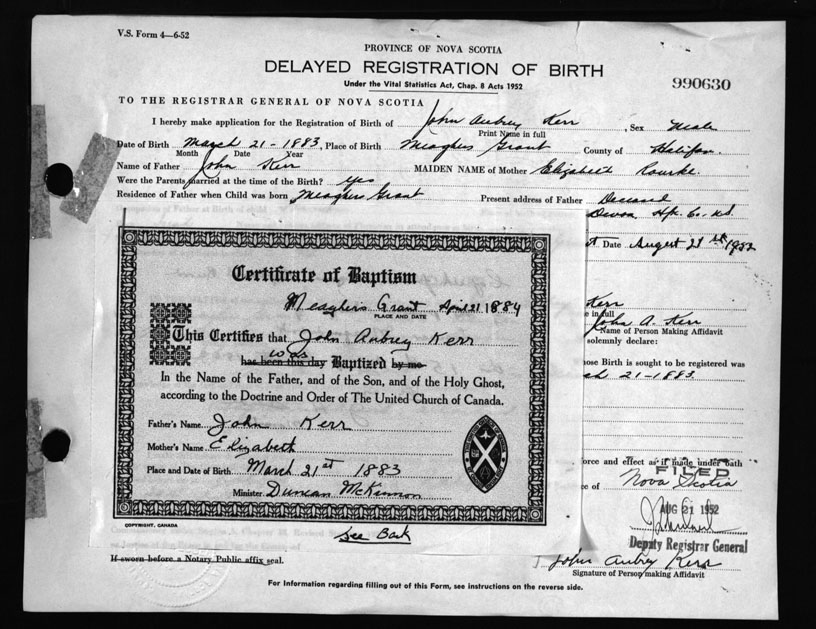 V.S. Form 4—6-52
PROVINCE OF NOVA SCOTIA
DELAYED REGISTRATION OF BIRTH
Under the Vital Statistics Act, Chap. 8 Acts 1952
990630
TO THE REGISTRAR GENERAL OF NOVA SCOTIA
I hereby make application for the Registration of Birth of John Aubrey Kerr, Sex Male
Print Name in full
Date of Birth March 21 - 1883, Place of Birth Meaghers Grant County of Halifax
Month Date Year
Name of Father John Kerr MAIDEN NAME of Mother Elizabeth Rourke.
Were the Parents married at the time of the Birth? yes
Residence of Father when Child was born Meaghers Grant Present address of Father Deceased
Devon Hfx. Co. N.S.
Date August 21st 1952
Certificate of Baptism
Meaghers Grant April 21 1884
PLACE AND DATE
This Certifies that John Aubrey Kerr
was
has been this day Baptized by me
In the Name of the Father, and of the Son, and of the Holy Ghost,
according to the Doctrine and Order of The United Church of Canada.
Father's Name John Kerr
Mother's Name Elizabeth
Place and Date of Birth March 21st 1883
Minister Duncan McKinnon
COPYRIGHT, CANADA
See Back
Kerr
e in full
John A. Kerr
Name of Person Making Affidavit
solemnly declare:
hose Birth is sought to be registered was
ch 21-1883.
orce and effect as if made under oath
FILED
ce of Nova Scotia
AUG 21 1952
Deputy Registrar General
If sworn before a Notary Public affix seal.
John Aubrey Kerr
Signature of Person making Affidavit
For Information regarding filling out of this Form, see instructions on the reverse side.